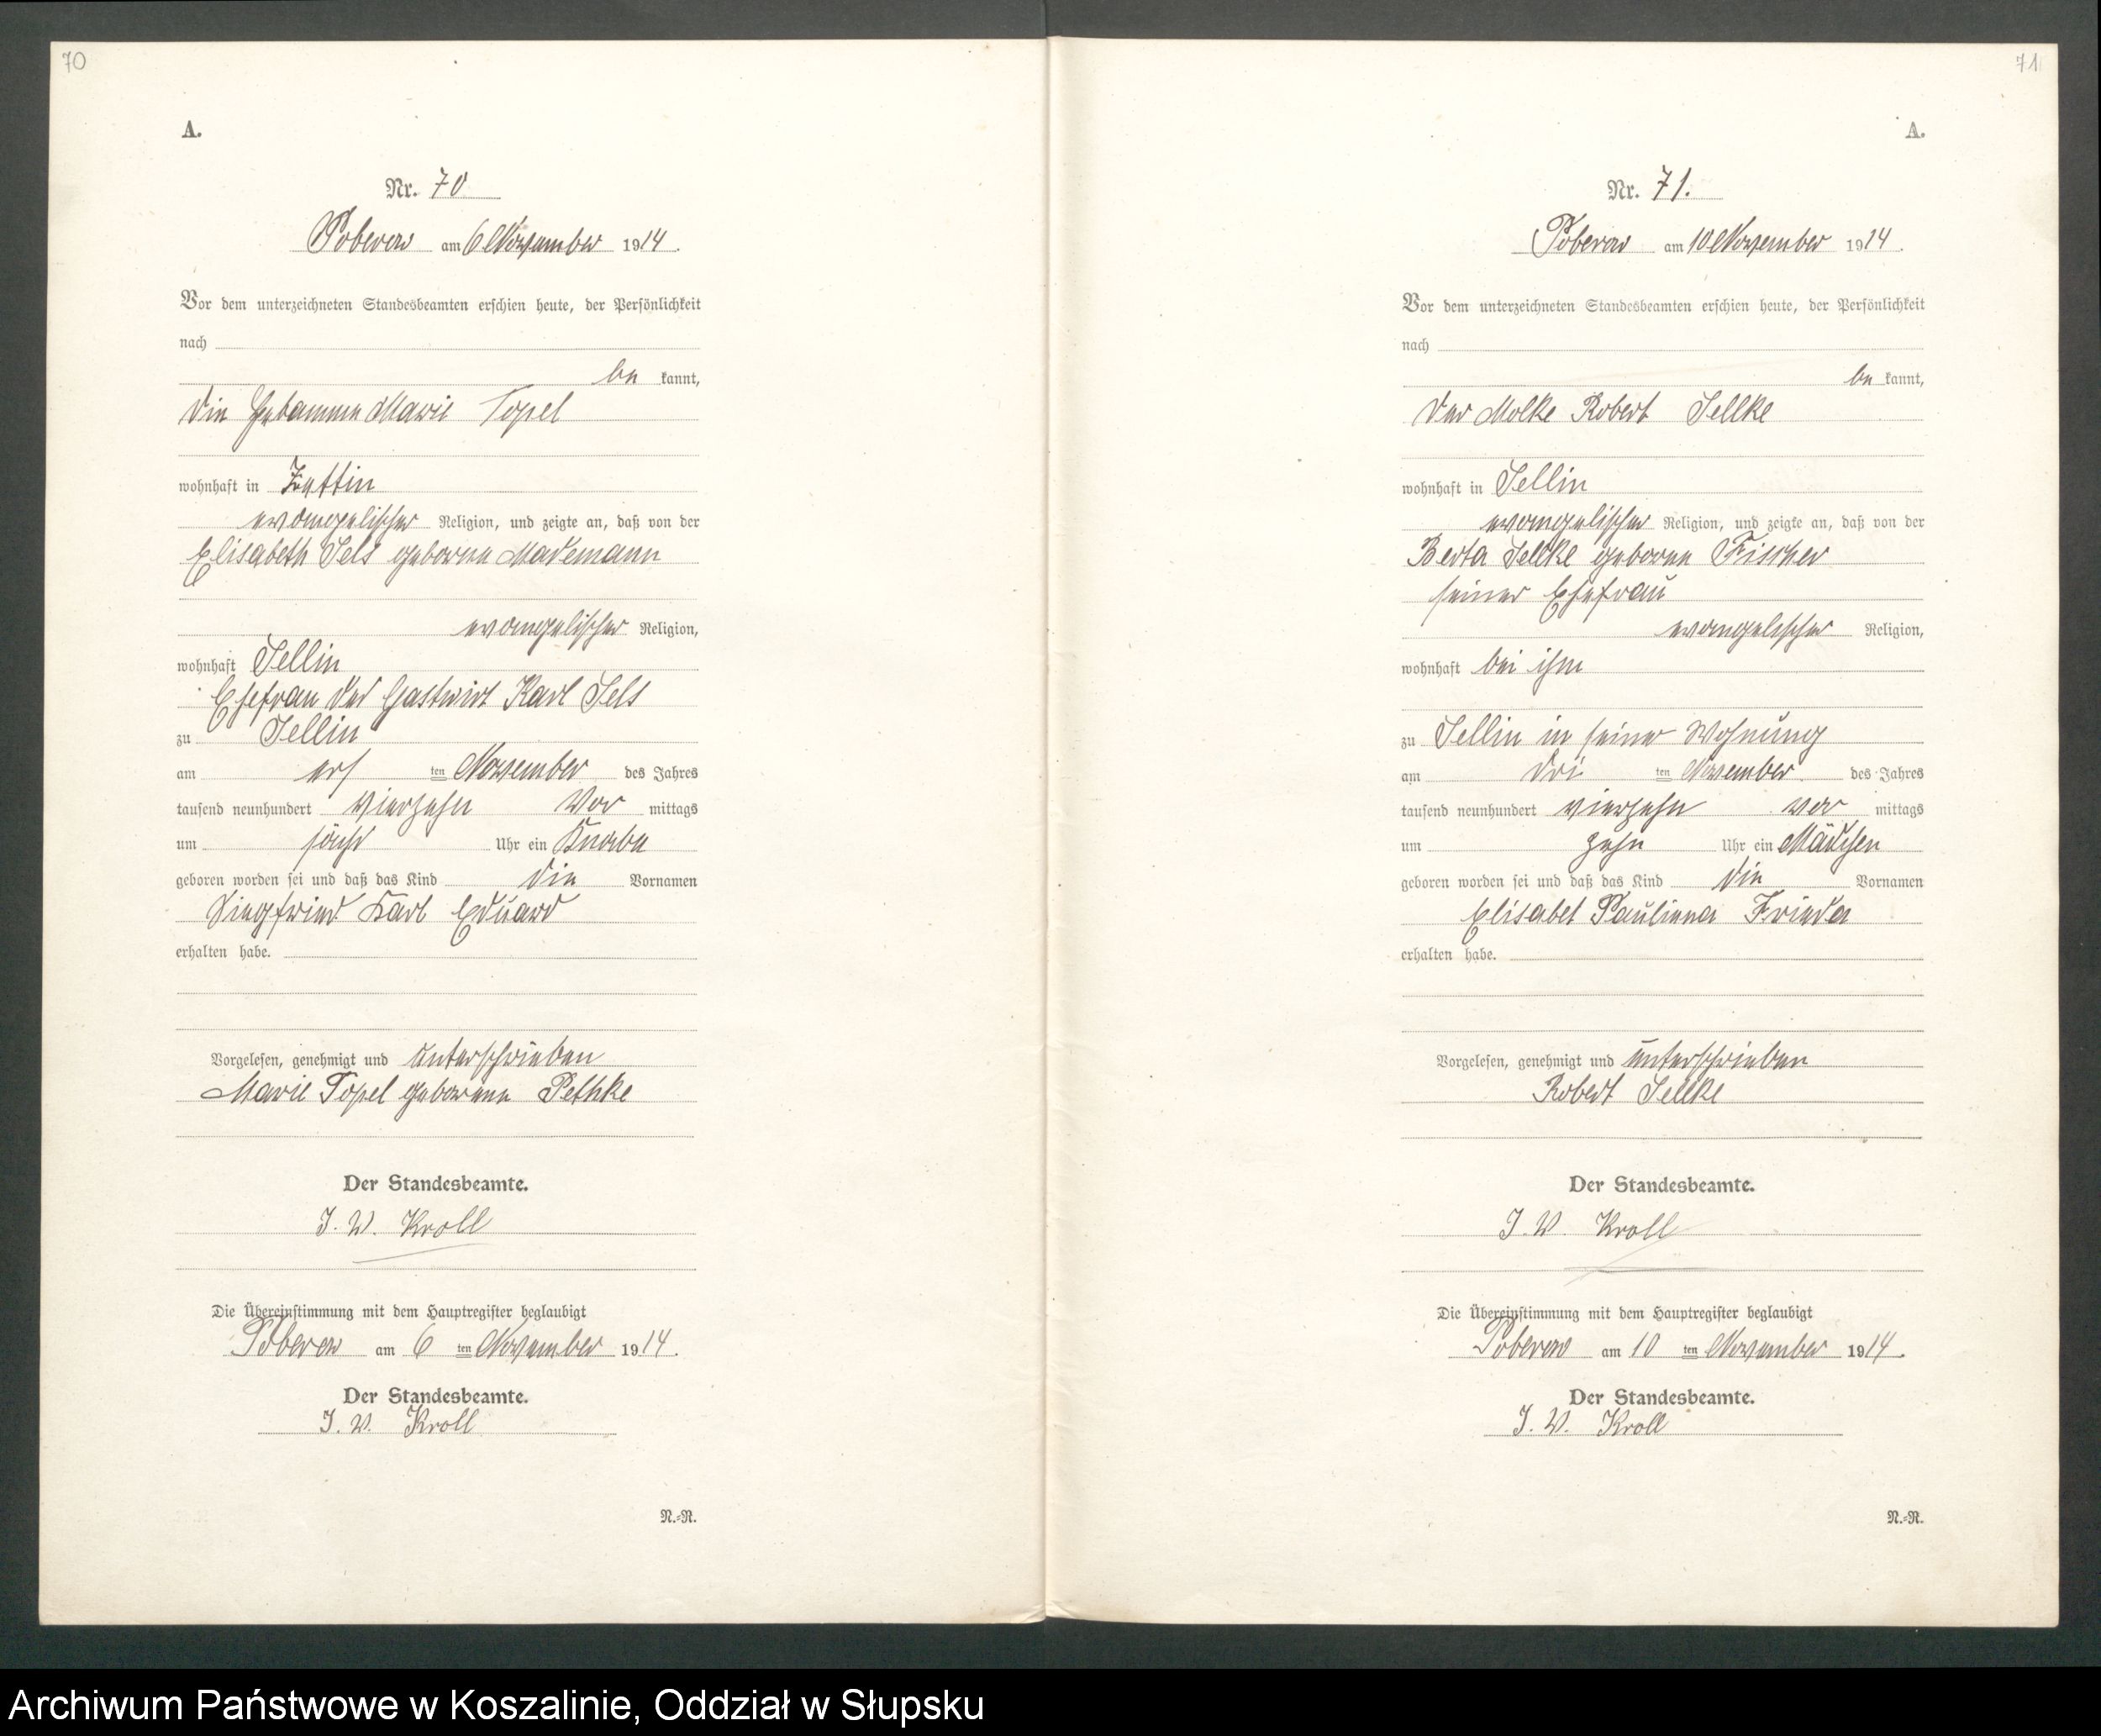 70
A.
Nr. 70
Poberow am 6 November 1914.
Vor dem unterzeichneten Standesbeamten erschien heute, der Persönlichkeit
nach
be kannt,
die Hebamme Marie Topel
wohnhaft in Zettin
evangelischer Religion, und zeigte an, daß von der
Elisabeth Sels geborne Mademann
evangelischer Religion,
wohnhaft Sellin
Ehefrau des Gastwirt Karl Sels
zu Sellin
am ers ten November des Jahres
tausend neunhundert vierzehn Vor mittags
um Uhr ein Knabe
geboren worden sei und daß das Kind die Vornamen
Siegfried Karl Eduard
erhalten habe.
Vorgelesen, genehmigt und unterschrieben
Marie Topel geborene Pethke
Der Standesbeamte.
J. V. Kroll
Die Übereinstimmung mit dem Hauptregister beglaubigt
Poberow am 6 ten November 1914.
Der Standesbeamte.
J. V. Kroll
N.-R.
71
A.
Nr. 71.
Poberow am 10 November 1914.
Vor dem unterzeichneten Standesbeamten erschien heute, der Persönlichkeit
nach
be kannt,
der Molke Robert Sellke
wohnhaft in Sellin
evangelischer Religion, und zeigte an, daß von der
Berta Sellke geborne Fischer
seiner Ehefrau
evangelischer Religion,
wohnhaft bei ihm
zu Sellin in seiner Wohnung
am dri ten November des Jahres
tausend neunhundert vierzehn vor mittags
um zehn Uhr ein Mädchen
geboren worden sei und daß das Kind die Vornamen
Elisabet Paulinna Frieda
erhalten habe.
Vorgelesen, genehmigt und unterschrieben
Robert Sellke
Der Standesbeamte.
J. V. Kroll
Die Übereinstimmung mit dem Hauptregister beglaubigt
Poberow am 10 ten November 1914.
Der Standesbeamte.
J. V. Kroll
N.-R.
Archiwum Państwowe w Koszalinie, Oddział w Słupsku